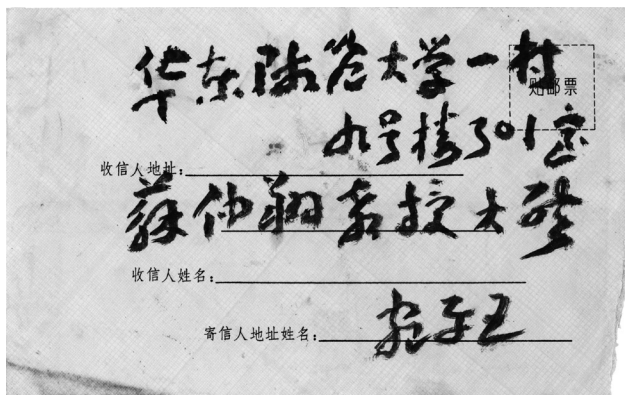 华东师范大学一村
贴邮票
九号楼301室
收信人地址：
蘇仲翔教授大啓
收信人姓名：
寄信人地址姓名：